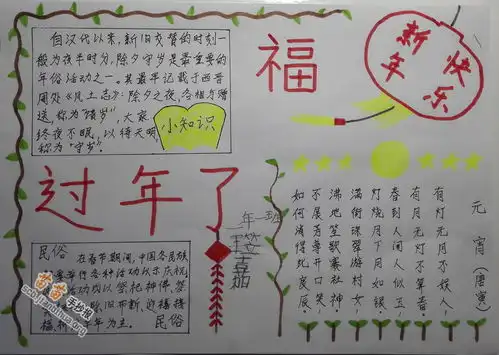 自汉代以来，新旧交替的时刻一
般为夜半时分，除夕守岁是最重要的
年俗活动之一。其最早记载于西晋
周处《风土志》：除夕之夜，各相与赠
送，称为"馈岁"，大家
终夜不眠，以待天明
称为"守岁"。
小知识
福
新年
快乐
过年了
年一班
嘉
元宵（唐寅）
有灯无月不娱人，
有月无灯不算春
春到人间人似玉，
灯烧月下月如银
满街珠翠游村女，
沸地笙歌赛社神
不展芳尊开口笑，
如何消得此良辰。
民俗
在春节期间，中国各民族
举行各种活动以示庆祝，
活动以祭祀神佛、祭
旧布新、迎福接
福、祈年为主。
民俗
手抄报